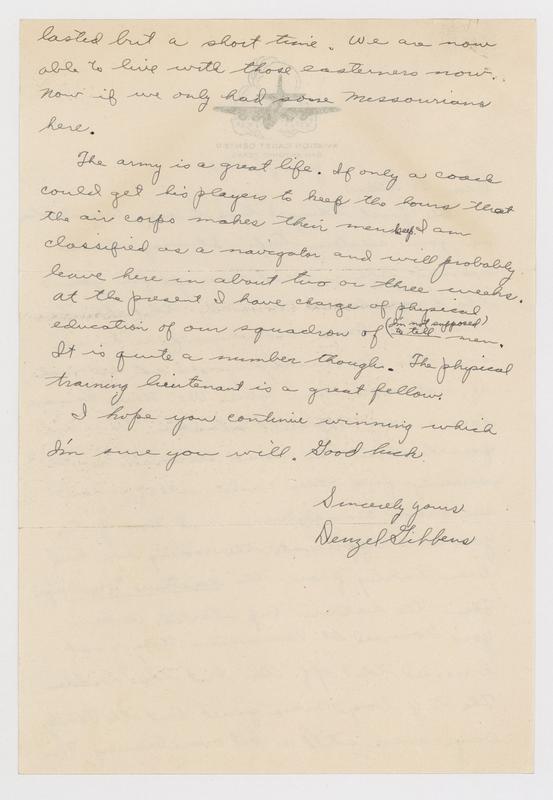 lasted but a short time. We are now
able to live with those easterners now.
Now if we only had some Missourians
here.
The army is a great life. If only a coach
could get his players to keep the hours that
the air corps makes their men keep. I am
classified as a navigator and will probably
leave here in about two or three weeks.
At the present I have charge of physical
education of our squadron of (I'm not supposed to tell) men.
It is quite a number though. The physical
training lieutenant is a great fellow.
I hope you continue winning which
I'm sure you will. Good luck.
Sincerely yours
Denzel Gibbens